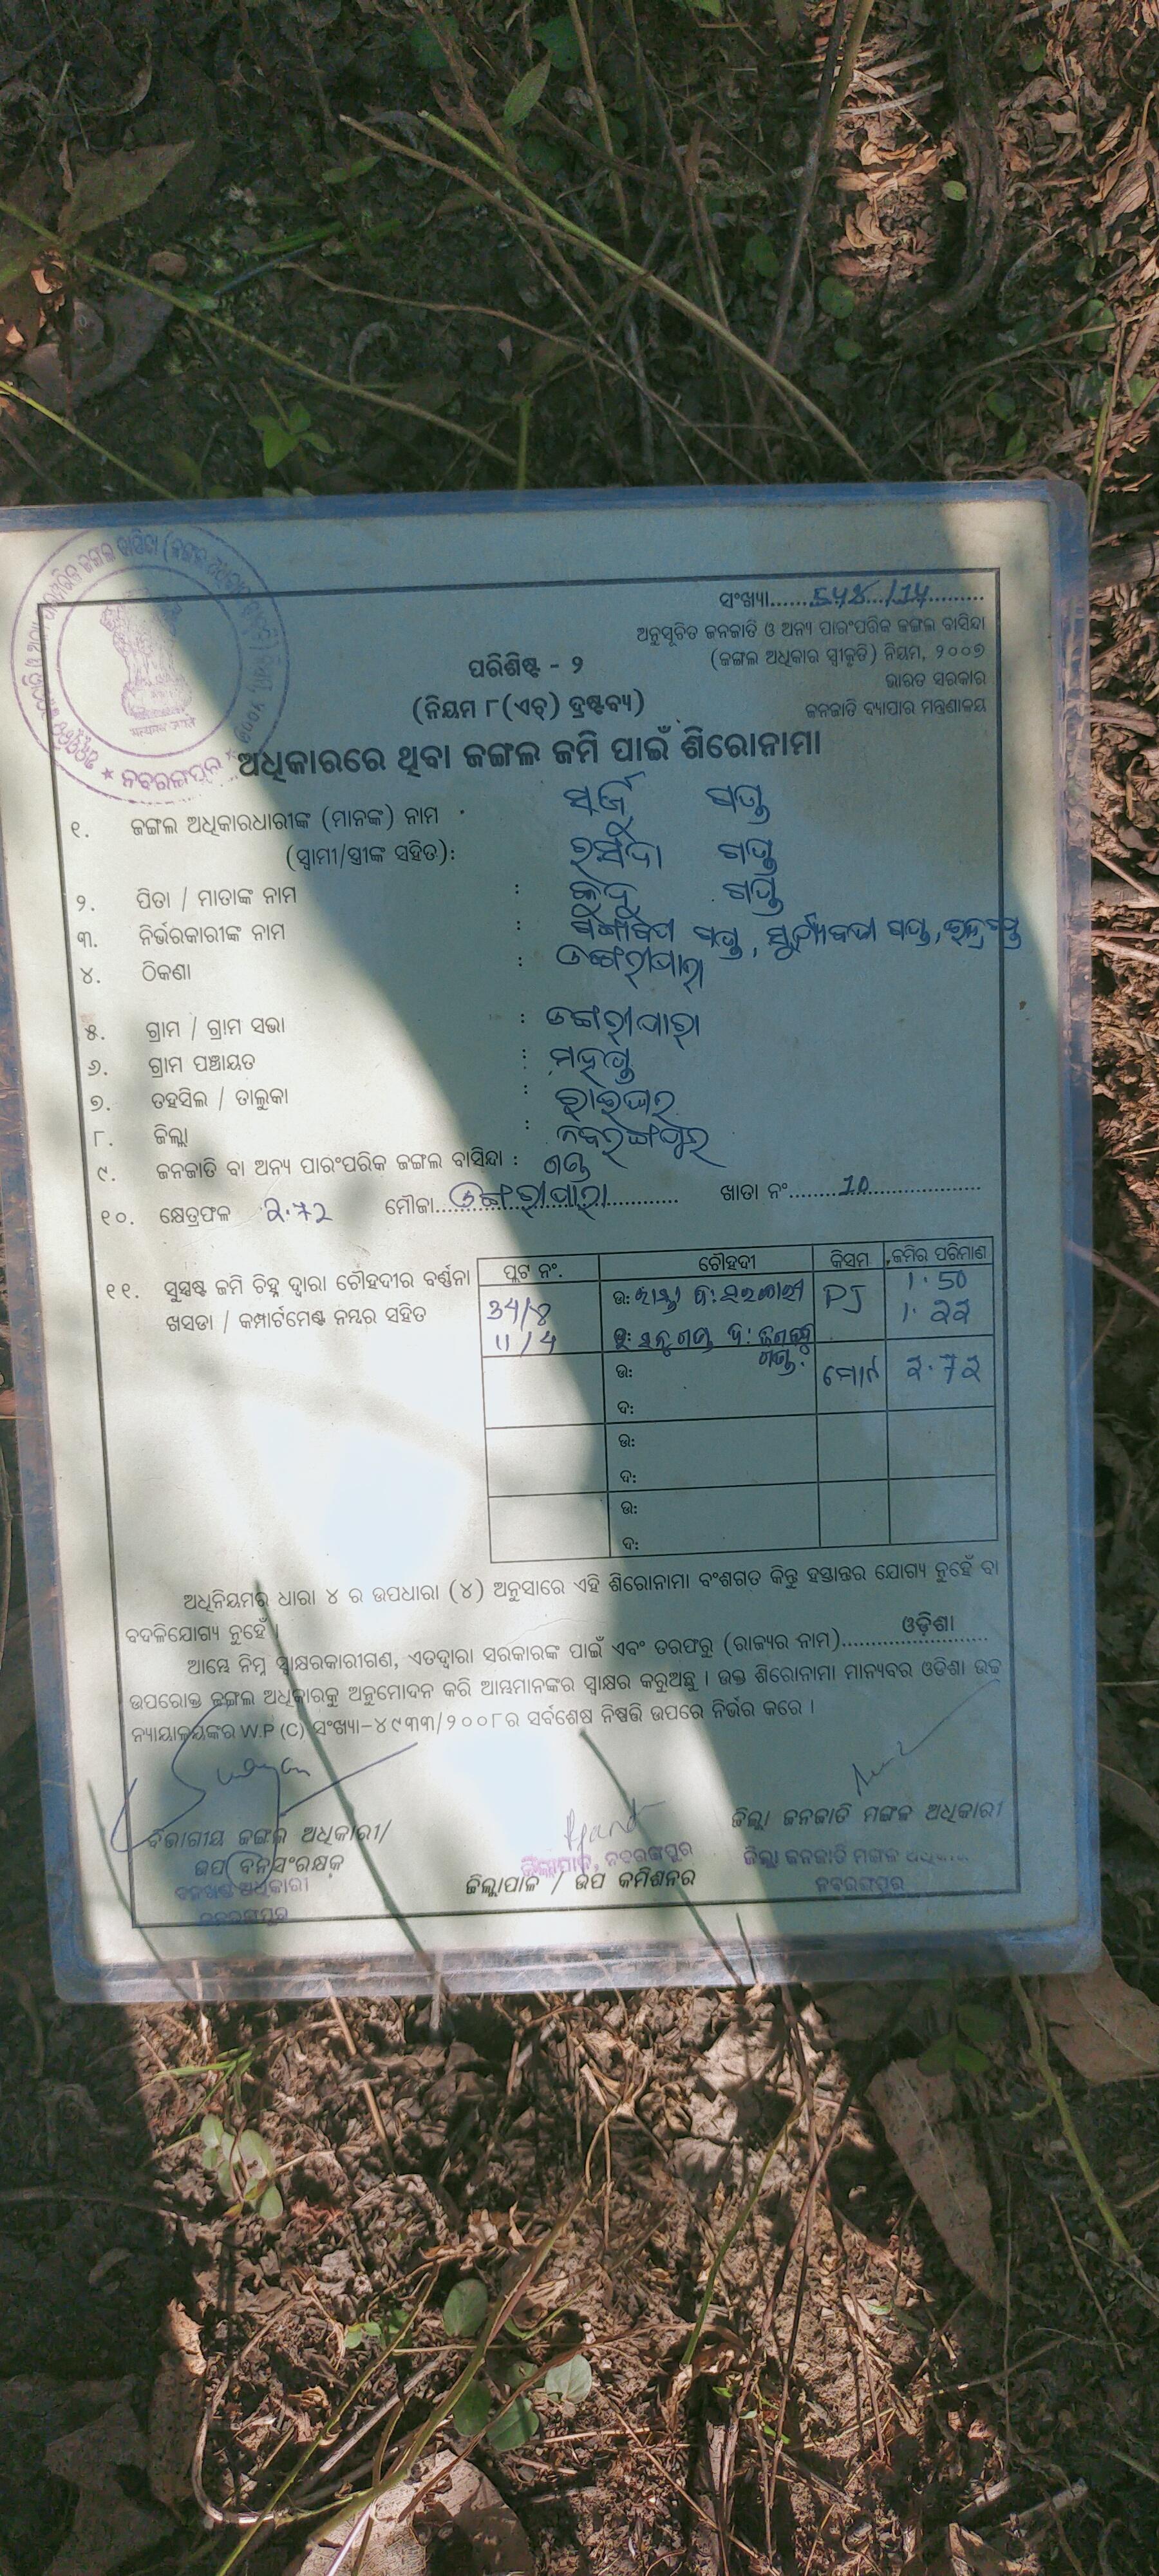 ସଂଖ୍ୟା......548/14.........
ଅନୁସୂଚିତ ଜନଜାତି ଓ ଅନ୍ୟ ପାରଂପରିକ ଜଙ୍ଗଲ ବାସିନ୍ଦା
(ଜଙ୍ଗଲ ଅଧିକାର ସ୍ୱୀକୃତି) ନିୟମ, ୨୦୦୭
ଭାରତ ସରକାର
ଜନଜାତି ବ୍ୟାପାର ମନ୍ତ୍ରଣାଳୟ
ପରିଶିଷ୍ଟ - ୨
(ନିୟମ ୮(ଏଚ୍) ଦ୍ରଷ୍ଟବ୍ୟ)
ନବରଙ୍ଗପୁର
ଅଧିକାରରେ ଥିବା ଜଙ୍ଗଲ ଜମି ପାଇଁ ଶିରୋନାମା
୧. ଜଙ୍ଗଲ ଅଧିକାରଧାରୀଙ୍କ (ମାନଙ୍କ) ନାମ : ଗଣ୍ଡ
(ସ୍ୱାମୀ/ସ୍ତ୍ରୀଙ୍କ ସହିତ): ଗଣ୍ଡ
୨. ପିତା / ମାତାଙ୍କ ନାମ : ଗଣ୍ଡ
୩. ନିର୍ଭରକାରୀଙ୍କ ନାମ : ଗଣ୍ଡ, ଗଣ୍ଡ,
୪. ଠିକଣା : ଡଙ୍ଗରୀପାରା
୫. ଗ୍ରାମ / ଗ୍ରାମ ସଭା : ଡଙ୍ଗରୀପାରା
୬. ଗ୍ରାମ ପଞ୍ଚାୟତ :
୭. ତହସିଲ / ତାଲୁକା : ରାଇଘର
୮. ଜିଲ୍ଲା : ନବରଙ୍ଗପୁର
୯. ଜନଜାତି ବା ଅନ୍ୟ ପାରଂପରିକ ଜଙ୍ଗଲ ବାସିନ୍ଦା : ଗଣ୍ଡ
୧୦. କ୍ଷେତ୍ରଫଳ 2.72 ମୌଜା...ଡଙ୍ଗରୀପାରା......... ଖାତା ନଂ.......10...............
୧୧. ସୁସ୍ପଷ୍ଟ ଜମି ଚିହ୍ନ ଦ୍ୱାରା ଚୌହଦୀର ବର୍ଣ୍ଣନା
ଖସଡା / କମ୍ପାର୍ଟମେଣ୍ଟ ନମ୍ବର ସହିତ
ପ୍ଲଟ ନଂ. ଚୌହଦୀ କିସମ ଜମିର ପରିମାଣ
34/8 ଉ: ରାସ୍ତା PJ 1.50
11/4 ଗଣ୍ଡ 1.22
ଗଣ୍ଡ
ଉ: ମୋଟ 2.72
ଦ:
ଉ:
ଦ:
ଉ:
ଦ:
ଅଧିନିୟମର ଧାରା ୪ ର ଉପଧାରା (୪) ଅନୁସାରେ ଏହି ଶିରୋନାମା ବଂଶଗତ କିନ୍ତୁ ହସ୍ତାନ୍ତର ଯୋଗ୍ୟ ନୁହେଁ ବା
ବଦଳିଯୋଗ୍ୟ ନୁହେଁ ।
ଆମ୍ଭେ ନିମ୍ନ ସ୍ୱାକ୍ଷରକାରୀଗଣ, ଏତଦ୍ୱାରା ସରକାରଙ୍କ ପାଇଁ ଏବଂ ତରଫରୁ (ରାଜ୍ୟର ନାମ).......ଓଡ଼ିଶା.......
ଉପରୋକ୍ତ ଜଙ୍ଗଲ ଅଧିକାରକୁ ଅନୁମୋଦନ କରି ଆମ୍ଭମାନଙ୍କର ସ୍ୱାକ୍ଷର କରୁଅଛୁ । ଉକ୍ତ ଶିରୋନାମା ମାନ୍ୟବର ଓଡିଶା ଉଚ୍ଚ
ନ୍ୟାୟାଳୟଙ୍କର W.P (C) ସଂଖ୍ୟା-୪୯୩୩/୨୦୦୮ର ସର୍ବଶେଷ ନିଷ୍ପତ୍ତି ଉପରେ ନିର୍ଭର କରେ ।
ବିଭାଗୀୟ ଜଙ୍ଗଲ ଅଧିକାରୀ/
ଉପ ବନସଂରକ୍ଷକ
ବନଖଣ୍ଡ ଅଧିକାରୀ
ନବରଙ୍ଗପୁର
ଜିଲ୍ଲାପାଳ, ନବରଙ୍ଗପୁର
ଜିଲ୍ଲାପାଳ / ଉପ କମିଶନର
ଜିଲ୍ଲା ଜନଜାତି ମଙ୍ଗଳ ଅଧିକାରୀ
ଜିଲ୍ଲା ଜନଜାତି ମଙ୍ଗଳ ଅଧିକାରୀ
ନବରଙ୍ଗପୁର